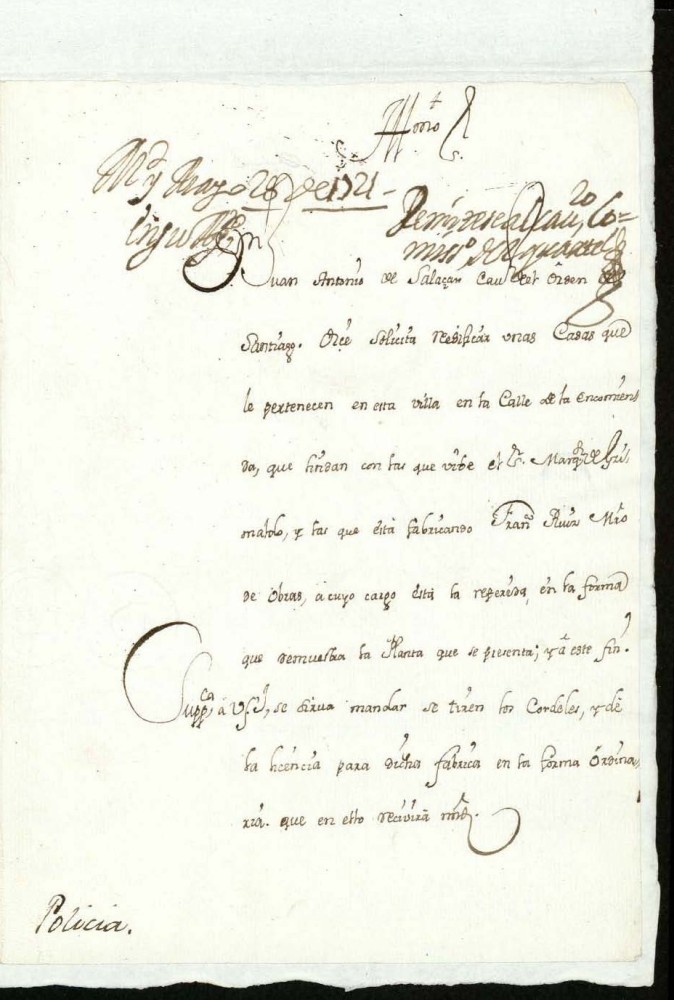 Illmo Sr
Md y Mayo 28 de 1721
En su Aytto
Remitese al Cauro Co=
misso del quartel
Juan Antonio de Salaçar Cauo del orden de
Santiago. Diçe solicita Reedificar unas Casas que
le pertenecen en esta villa en la Calle de la encomien
da, que lindan con las que vibe el Sr. Marqs de Gri
maldo, y las que está fabricando Franco Ruiz Mro
de obras, a cuyo cargo está la referida, en la forma
que demuestra la Planta que se presenta; y à este fin.
Suppca à V.S.I, se sirua mandar se tiren los Cordeles, y dé
la licencia para dicha fabrica en la forma órdina
ria. que en ello Recivirá mrd.
Policia.